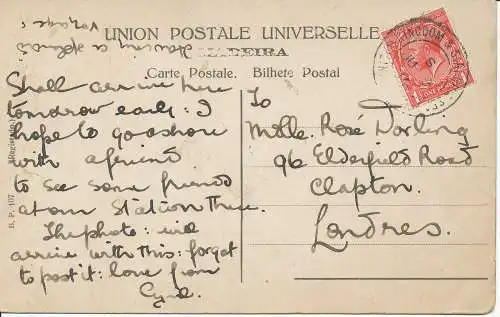 having a splendid
voyage
UNION POSTALE UNIVERSELLE
MADEIRA
Carte Postale. Bilhete Postal
Shall arrive here
tomorrow early: I
hope to go ashore
with a friend
to see some friend
at our Station there.
The photo: will
arrive with this: forgot
to post it: love from
Cyril.
To
Mdlle. Rosé Dorling
96 Elderfield Road
Clapton.
Londres.
B. P. 107
(Registado.)
KINGDOM &